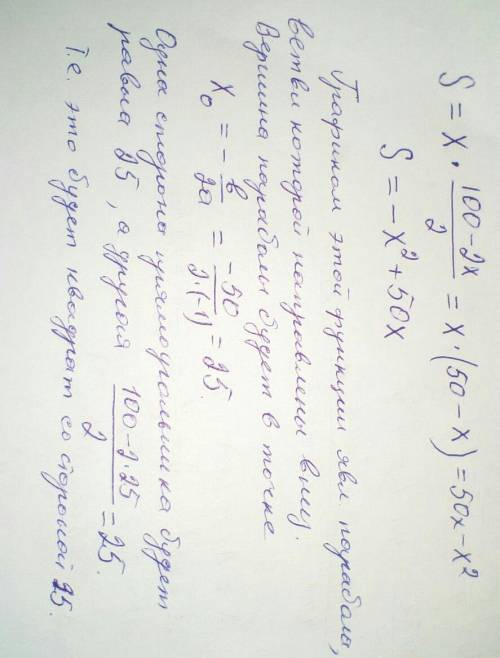 S = x · \frac{100-2x}{2} = x·(50-x) = 50x-x²
S = -x² + 50x
Графиком этой функции явл. парабола,
ветви которой направлены вниз.
Вершина параболы будет в точке
x₀ = -\frac{b}{2a} = \frac{-50}{2·(-1)} = 25.
Одна сторона прямоугольника будет
равна 25, а другая \frac{100-2·25}{2} = 25.
Т.е. это будет квадрат со стороной 25.